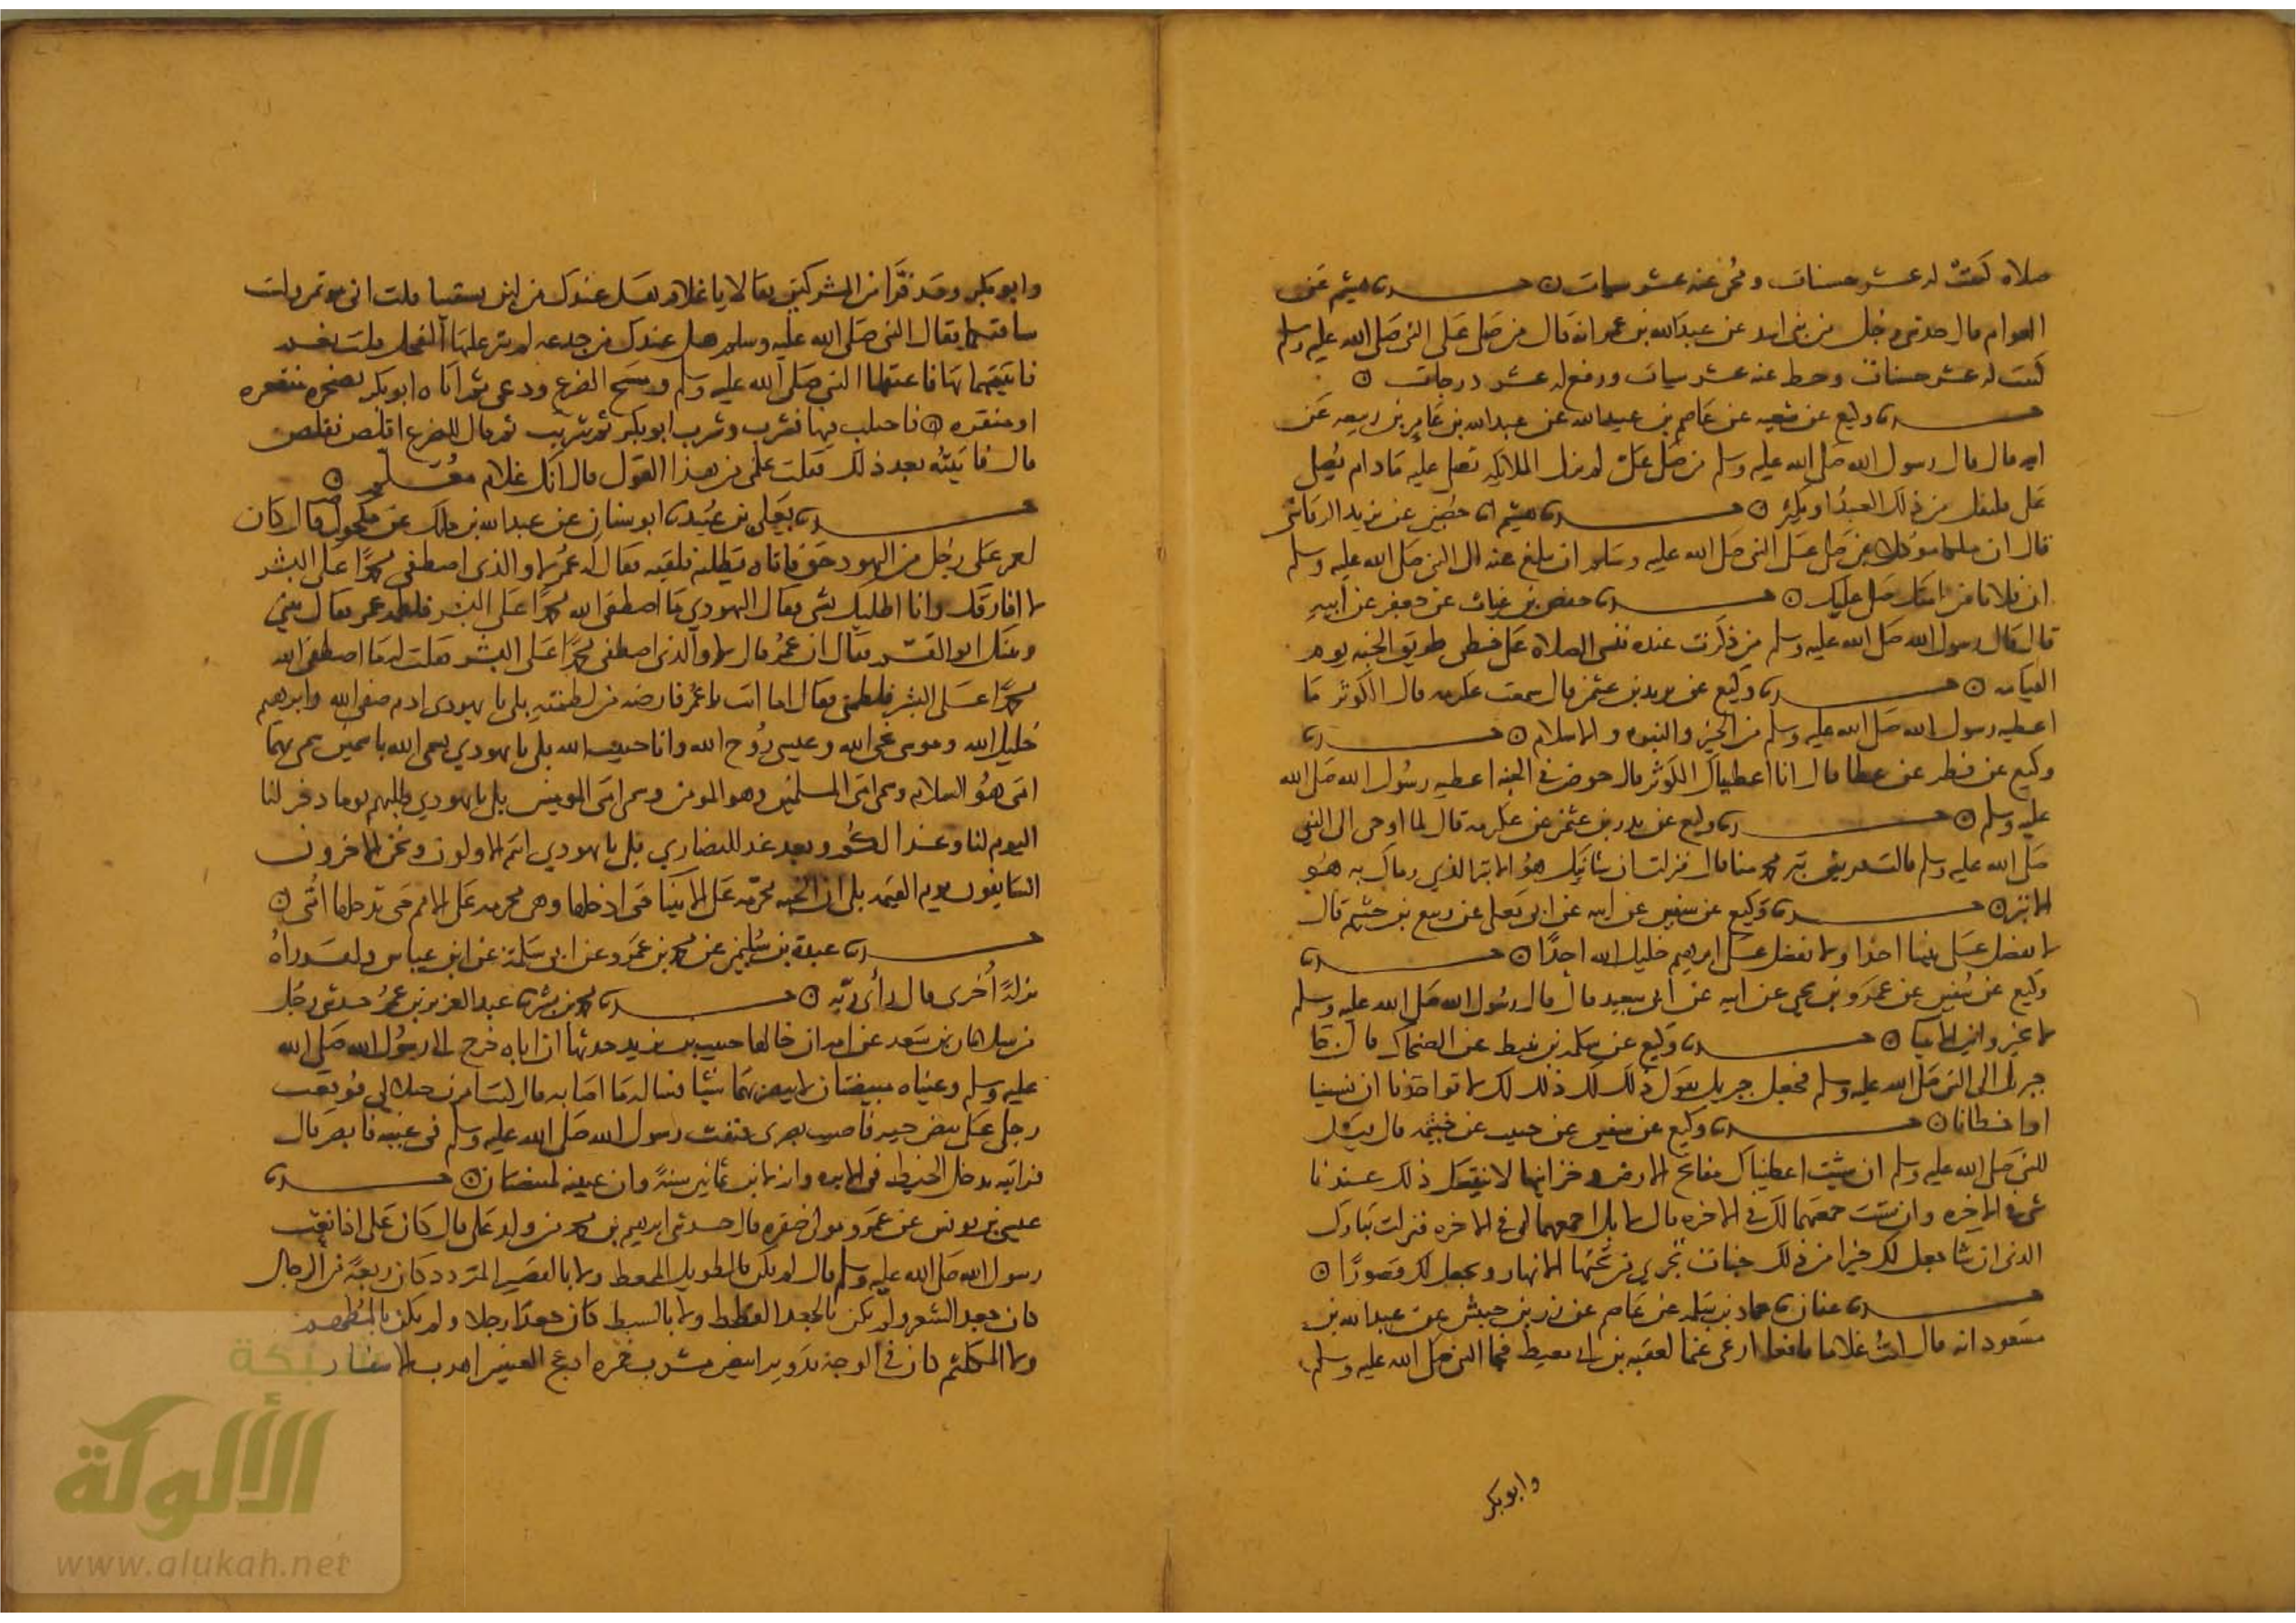 صلاة كتبت له عشر حسنات ومحي عنه عشر سيات ۞ حدثنا هشيم عن
العوام قال حدثني رجل من بني اسد عن عبدالله بن عمر انه قال من صلى على النبي صلى الله عليه وسلم
كتبت له عشر حسنات وحط عنه عشر سيات ورفع له عشر درجات ۞
حدثنا وكيع عن شعبه عن عاصم بن عبيدالله عن عبدالله بن عامر بن ربيعه عن
ابيه قال قال رسول الله صلى الله عليه وسلم من صلى علي لم تزل الملائكه تصلي عليه مادام يصلي
علي فليقل من ذلك العبد او ليكثر ۞ حدثنا هشيم انا حصين عن يزيد الرقاشي
قال ان ملكا موكل بمن صلى على النبي صلى الله عليه وسلم ان يبلغ عنه الى النبي صلى الله عليه وسلم
ان فلانا من امتك صلى عليك ۞ حدثنا حفص بن غياث عن جعفر عن ابيه
قال قال رسول الله صلى الله عليه وسلم من ذكرت عنده فنسي الصلاة علي خطي طريق الجنه يوم
القيامه ۞ حدثنا وكيع عن بدر بن عثمن قال سمعت عكرمه قال الكوثر ما
اعطيه رسول الله صلى الله عليه وسلم من الخير والنبوه والاسلام ۞ حدثنا
وكيع عن فطر عن عطا قال انا اعطيناك الكوثر قال حوض في الجنه اعطيه رسول الله صلى الله
عليه وسلم ۞ حدثنا وكيع عن بدر بن عثمن عن عكرمه قال لما اوحي الى النبي
صلى الله عليه وسلم قالت قريش بتر محمد منا قال فنزلت ان شانيك هو الابتر الذي رماك به هو
الابتر ۞ حدثنا وكيع عن سفين عن ابيه عن ابي يعلى عن ربيع بن خثيم قال
لا نفضل على نبينا احدا ولا نفضل على ابرهيم خليل الله احدًا ۞ حدثنا
وكيع عن سفين عن عمرو بن يحي عن ابيه عن ابي سعيد قال قال رسول الله صلى الله عليه وسلم
لا تخيروا بين الانبيا ۞ حدثنا وكيع عن سلمه بن نبيط عن الضحاك قال جا
جبريل الى النبي صلى الله عليه وسلم فجعل جبريل يقول ذلك لك ذلك لك لا تواخذنا ان نسينا
او اخطانا ۞ حدثنا وكيع عن سفين عن حبيب عن خيثمه قال قيل
للنبي صلى الله عليه وسلم ان شيت اعطيناك مفاتح الارض وخزاينها لا ينقصك ذلك عندنا
شي في الاخره وان شيت جمعتهما لك في الاخره قال لا بل اجمعهما لي في الاخره فنزلت تبارك
الذي ان شا جعل لك خيرا من ذلك جنات تجري من تحتها الانهار ويجعل لك قصورًا ۞
حدثنا عفان ثنا حماد بن سلمه عن عاصم عن زر بن حبيش عن عبدالله بن
مسعود انه قال كنت غلاما يافعا ارعى غنما لعقبه بن ابي معيط فجا النبي صلى الله عليه وسلم
وابوبكر
وابوبكر وقد فرا من المشركين فقالا يا غلام هل عندك من لبن تسقينا قلت اني موتمن ولست
ساقيكما فقال النبي صلى الله عليه وسلم هل عندك من جدعه لم ينز عليها الفحل قلت نعم
فاتيتهما بها فاعتقلها النبي صلى الله عليه وسلم ومسح الضرع ودعى ثم اتاه ابوبكر بصخره منقعره
او منقره ۞ فاحتلب فيها فشرب وشرب ابوبكر ثم شربت ثم قال للضرع اقلص فقلص
قال فاتيته بعد ذلك فقلت علمني من هذا القول قال انك غلام معلم ۞
حدثنا يعلى بن عبيد ثنا ابوسنان عن عبدالله بن ملك عن مكحول قال كان
لعمر على رجل من اليهود حق فاتاه يطلبه فلقيه فقال له عمر لا والذي اصطفى محمدًا على البشر
لا افارقك وانا اطلبك بشي فقال اليهودي ما اصطفى الله محمدًا على البشر فلطمه عمر فقال بيني
وبينك ابو القسم فقال ان عمر قال لا والذي اصطفى محمدًا على البشر فقلت له ما اصطفى الله
محمدًا على البشر فلطمني فقال اما انت يا عمر فارضه من لطمته بلى يا يهودي ادم صفي الله وابرهيم
خليل الله وموسى نجي الله وعيسى روح الله وانا حبيب الله بلى يا يهودي يسمى الله باسمين سمى بهما
امتي هو السلام وسمى امتي المسلمين وهو المومن وسمى امتي المومنين بلى يا يهودي طلبتم يوما دخر لنا
اليوم لنا وغدا لكم وبعد غد للنصاري بلى يا يهودي انتم الاولون ونحن الاخرون
السابقون يوم القيمه بلى ان الجنه محرمه على الانبيا حتى ادخلها وهي محرمه على الامم حتى تدخلها امتي ۞
حدثنا عبدة بن سليمن عن محمد بن عمرو عن ابي سلمة عن ابن عباس ولقد راه
نزلةً اخرى قال راى ربه ۞ حدثنا محمد بن بشر ثنا عبدالعزيز بن عمر حدثني رجل
من سلامان بن سعد عن امه ان خالها حبيب بن فديد حدثها ان اباه خرج الى رسول الله صلى الله
عليه وسلم وعيناه مبيضتان لا يبصر بهما شيًا فساله ما اصابه قال كنت امرن جملا لي فوقعت
رجلي على بيض حيه فاصيب بصري فنفث رسول الله صلى الله عليه وسلم في عينيه فابصر قال
فرايته يدخل الخيط في الابره وانه لابن ثمانين سنةً وان عينيه لمبيضتان ۞ حدثنا
عيسى بن يونس عن عمر ومولى غفره قال حدثني ابرهيم بن محمد من ولد علي قال كان علي اذا نعت
رسول الله صلى الله عليه وسلم قال لم يكن بالطويل الممغط ولا بالقصير المتردد كان ربعةً من الرجال
كان جعد الشعر ولم يكن بالجعد القطط ولا بالسبط كان جعدًا رجلا ولم يكن بالمطهم
ولا المكلثم كان في الوجه تدوير ابيض مشرب حمره ادعج العينين اهدب الاشفار
شبكة
الألوكة
www.alukah.net